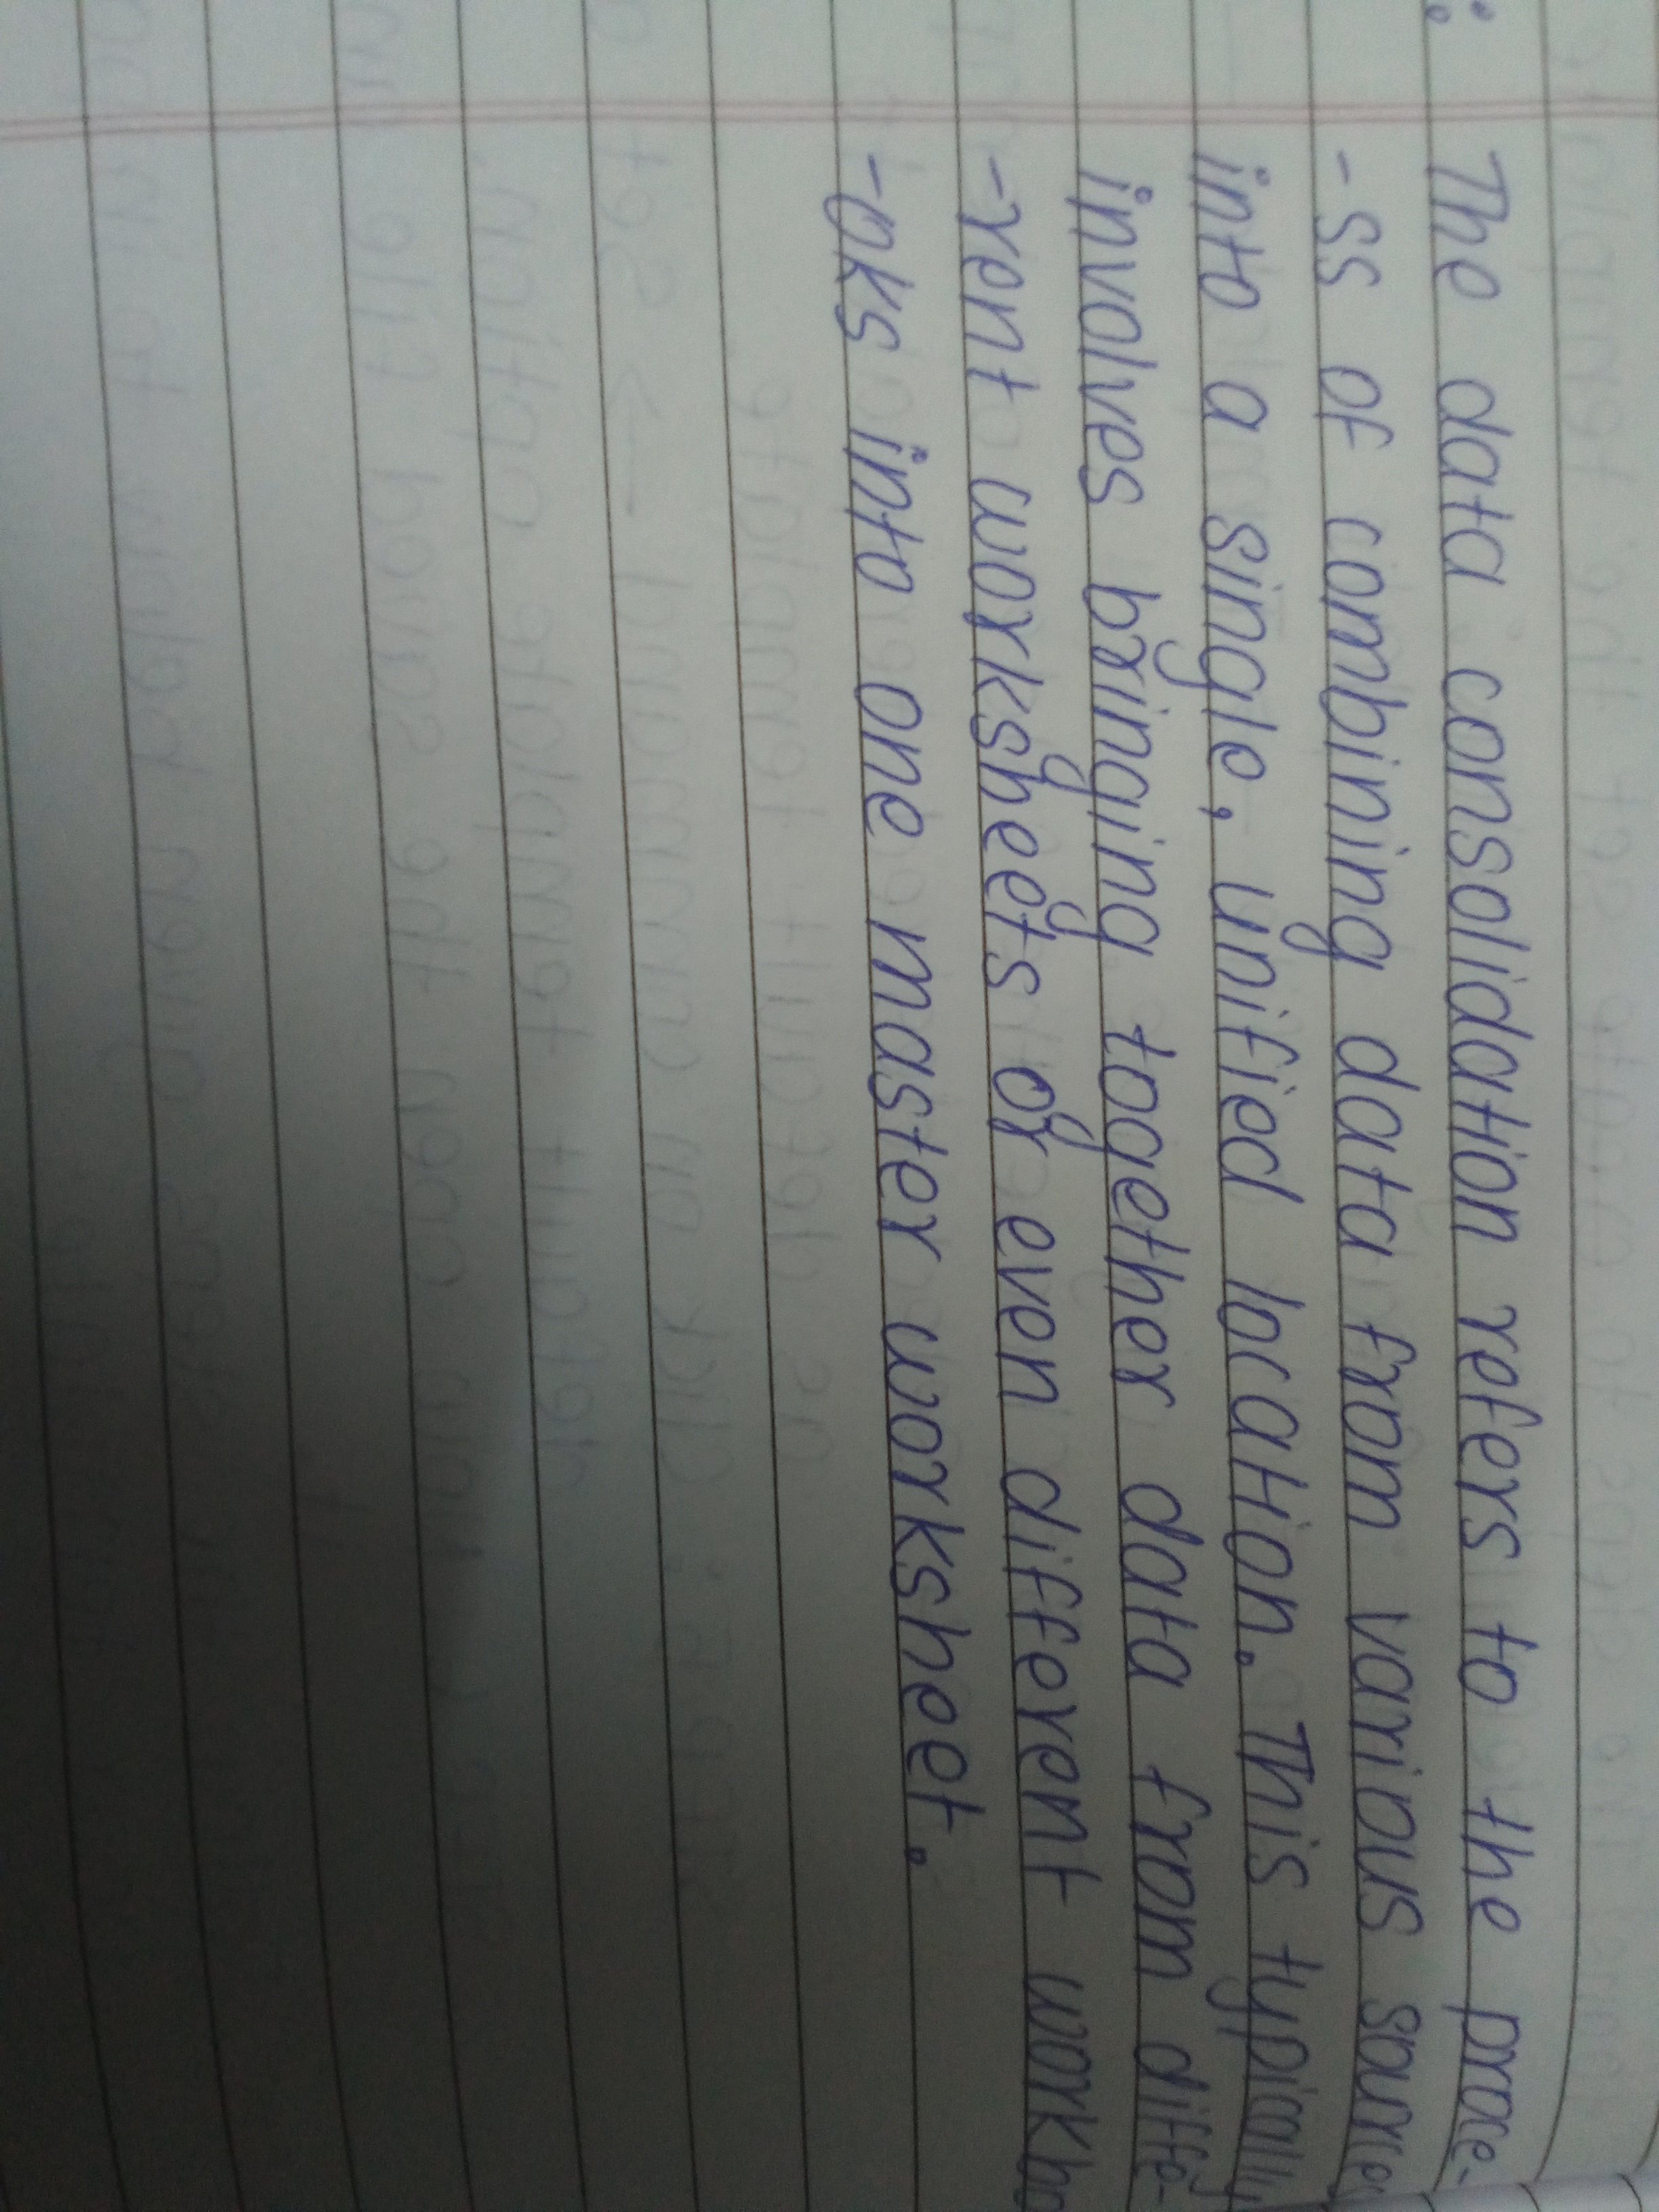 : The data consolidation refers to the proce-
-ss of combining data from various source
into a single, unified location. This typically
involves bringing together data from diffe-
-rent worksheets or even different workbo
-oks into one master worksheet.